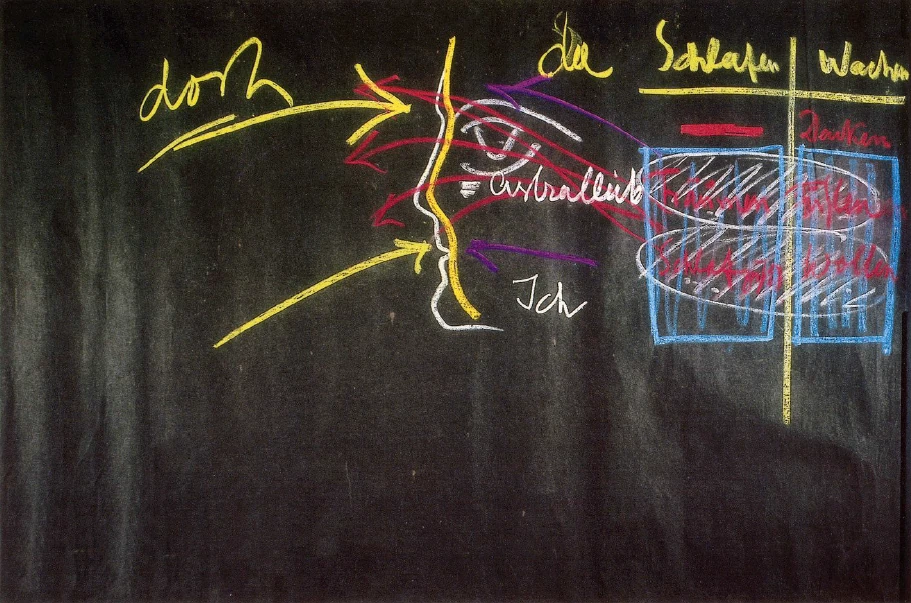 dort
da
Schlafen Wachen
Denken
Astralleib
Träumen Fühlen
Schlafen Wollen
Ich